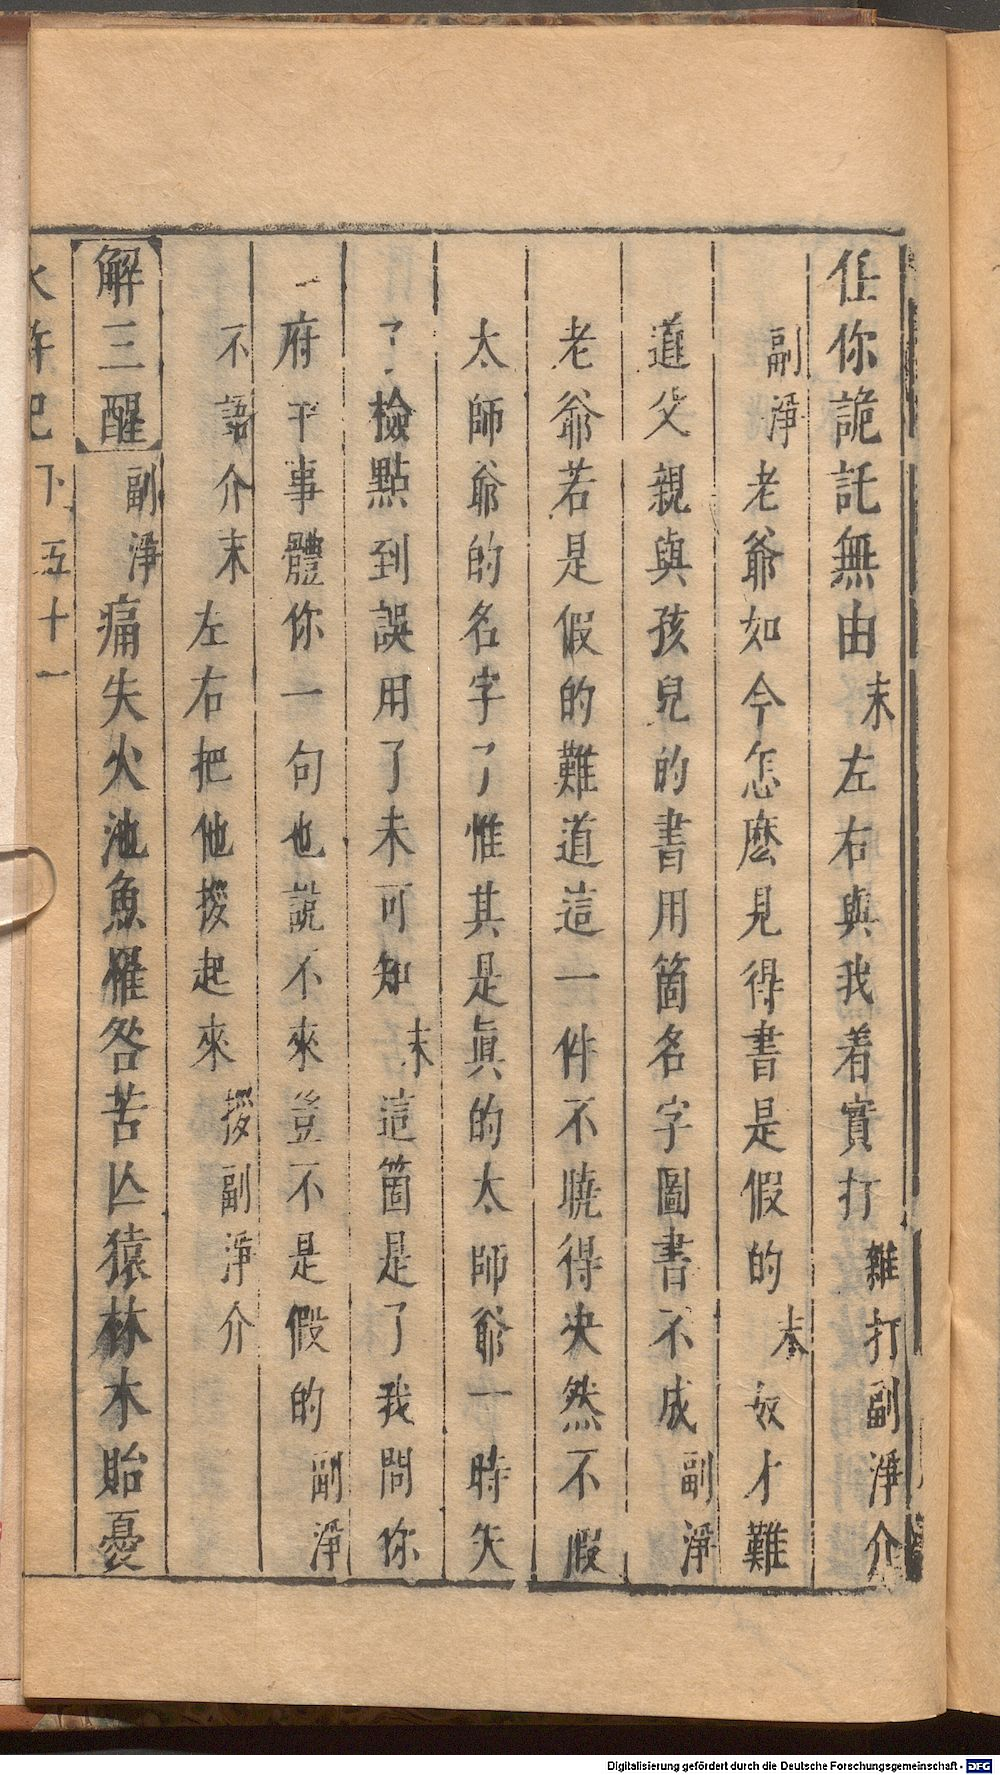 任你詭託無由末左右與我着實打雜打副淨介
副淨老爺如今怎麽見得書是假的末奴才難
道父親與孩兒的書用箇名字圖書不成副淨
老爺若是假的難道這一件不曉得決然不假
太師爺的名字了惟其是眞的太師爺一時失
了檢點到誤用了未可知末這箇是了我問你
一府中事體你一句也說不來豈不是假的副淨
不語介末左右把他拶起來拶副淨介
解三醒副淨痛失火池魚罹咎苦亾猿林木貽憂
水滸記下五十一
Digitalisierung gefördert durch die Deutsche Forschungsgemeinschaft - DFG